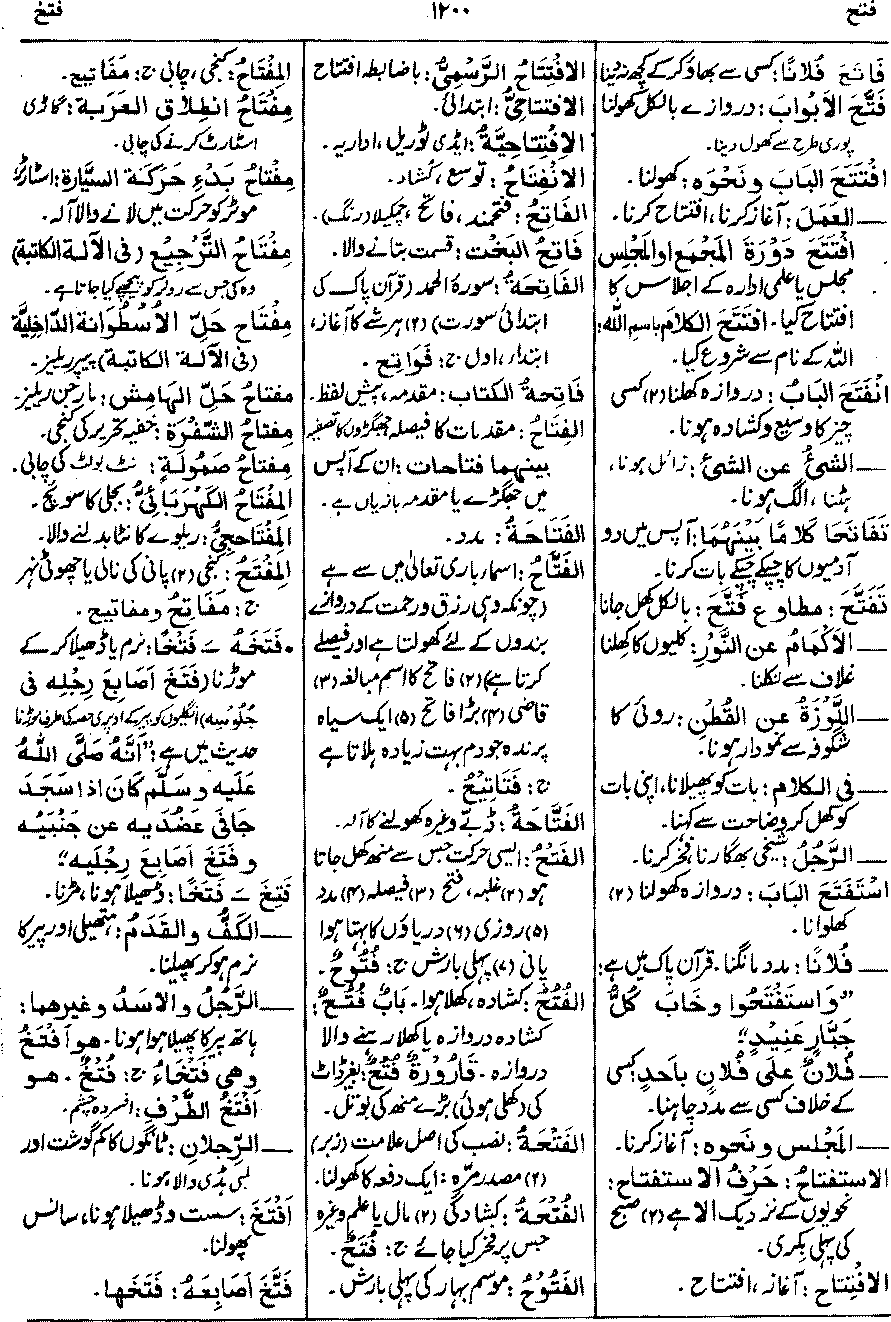 فتح
۱۲۰۰
فتخ
فَاتَحَ فُلَانًا: کسی سے بھاؤ کرکے کچھ نہ دینا
فَتَّحَ الْاَبْوَابَ: دروازے بالکل کھولنا
پوری طرح سے کھول دینا۔
افْتَتَحَ البَابَ ونَحْوَه: کھولنا۔
— العَمَلَ: آغاز کرنا، افتتاح کرنا۔
افْتَتَحَ دَوْرَةَ المَجْمَعِ اوالمَجْلِس
مجلس یا علمی ادارہ کے اجلاس کا
افتتاح کیا۔ افْتَتَحَ الکلامَ باسمِ اللہ:
اللہ کے نام سے شروع کیا۔
انْفَتَحَ البَابُ: دروازہ کھلنا (۲) کسی
چیز کا وسیع وکشادہ ہونا۔
— الشیُٔ عن الشیٔ: زائل ہونا،
ہٹنا، الگ ہونا۔
تَفَاتَحَا کَلَامًا بَیْنَهُمَا: آپس میں دو
آدمیوں کا چپکے چپکے بات کرنا۔
تَفَتَّحَ: مطاوع فَتَّحَ: بالکل کھل جانا
— الاَکْمَامُ عن النَّوْرِ: کلیوں کا کھلنا
غلاف سے نکلنا۔
— اللَّوْزَةُ عن القُطْنِ: روئی کا
شگوفہ سے نمودار ہونا۔
— فی الکلام: بات کو پھیلانا، اپنی بات
کو کھل کر وضاحت سے کہنا۔
— الرَّجُلُ: شیخی بھگارنا فخر کرنا۔
اسْتَفْتَحَ البَابَ: دروازہ کھولنا (۲)
کھلوانا۔
— فُلَانًا: مدد مانگنا۔ قرآن پاک میں ہے:
”وَاسْتَفْتَحُوا وخَابَ کُلُّ
جَبَّارٍ عَنِیْدٍ“
— فُلَانٌ عَلٰی فُلَانٍ بِاَحَدٍ: کسی
کے خلاف کسی سے مدد چاہنا۔
— المَجْلس ونحوه: آغاز کرنا۔
الاستفتاحُ: حَرْفُ الاستفتاح:
نحویوں کے نزدیک الا ہے (۲) صبح
کی پہلی بکری۔
الافْتِتَاحُ: آغاز، افتتاح۔
الافْتِتَاحُ الرَّسْمِیُّ: باضابطہ افتتاح
الافْتِتَاحِیُّ: ابتدائی۔
الافْتِتَاحِیَّةُ: ایڈی ٹوریل، اداریہ۔
الانْفِتَاحُ: توسع، کشاد۔
الفَاتِحُ: فتحمند، فاتح، چمکیلا (رنگ)۔
فَاتِحُ البَخْت: قسمت بتانے والا۔
الفَاتِحَةُ: سورۂ الحمد (قرآن پاک کی
ابتدائی سورت) (۲) ہرشے کا آغاز،
ابتداء، اول ج: فَوَاتِح۔
فَاتِحَةُ الکتاب: مقدمہ، پیش لفظ۔
الفِتَاحُ: مقدمات کا فیصلہ جھگڑوں کا تصفیہ
بینهما فتاحات: ان کے آپس
میں جھگڑے یا مقدمہ بازیاں ہے۔
الفَتَاحَةُ: مدد۔
الفَتَّاحُ: اسماء باری تعالیٰ میں سے ہے
(چونکہ وہی رزق ورحمت کے دروازے
بندوں کے لئے کھولتا ہے اور فیصلے
کرتا ہے) (۲) فاتح کا اسم مبالغہ (۳)
قاضی (۴) بڑا فاتح (۵) ایک سیاہ
پرندہ جو دم بہت زیادہ ہلاتا ہے
ج: فَتَاتِیْحُ۔
الفَتَّاحَةُ: ڈبے وغیرہ کھولنے کا آلہ۔
الفَتْحُ: ایسی حرکت جس سے منھ کھل جاتا
ہو (۲) غلبہ، فتح (۳) فیصلہ (۴) مدد
(۵) روزی (۶) دریاؤں کا بہتا ہوا
پانی (۷) پہلی بارش ج: فُتُوْحٌ۔
الفُتُحُ: کشادہ، کھلا ہوا۔ بَابٌ فُتُحٌ:
کشادہ دروازہ یا کھلا رہنے والا
دروازہ۔ قَارُوْرَةٌ فُتُحٌ: بغیر ڈاٹ
کی (کھلی ہوئی) بڑے منھ کی بوتل۔
الفَتْحَةُ: نصب کی اصل علامت (زبر)
(۲) مصدر مَرّہ: ایک دفعہ کا کھولنا۔
الفُتْحَةُ: کشادگی (۲) مال یا علم وغیرہ
جس پر فخر کیا جائے ج: فُتَحٌ۔
الفَتُوْحُ: موسم بہار کی پہلی بارش۔
المِفْتَاحُ: کنجی، چابی ج: مفَاتِیح۔
مِفْتَاحُ انْطِلَاقِ العَرَبَة: گاڑی
اسٹارٹ کرنے کی چابی۔
مِفْتَاحُ بَدْءِ حَرَکَةِ السَّیَّارَة: اسٹارٹر
موٹر کو حرکت میں لانے والا آلہ۔
مِفْتَاحُ التَّرْجِیْعِ (فی الآلة الکاتبة)
وہ کی جس سے رولر کو پیچھے کیا جاتا ہے۔
مِفْتَاحِ حَلِّ الاُسْطُوَانَة الدَّاخِلِیَّة
(فی الآلة الکاتبة) پیپر ریلیز۔
مِفتاحُ حَلِّ الهَامِش: مارجن ریلیز۔
مِفتاحُ الشَّفْرَة: خفیہ تحریر کی کنجی۔
مِفتَاحُ صَمُوْلَةٍ: نٹ بولٹ کی چابی۔
المِفْتَاحُ الکَهْرَبَائِیُّ: بجلی کا سوئچ۔
المِفْتَاحِجِیُّ: ریلوے کا کانٹا بدلنے والا۔
المِفْتَحُ: کنجی (۲) پانی کی نالی یا چھوٹی نہر
ج: مَفَاتِحُ ومفاتیح۔
• فَتَخَهُ — فَتْخًا: نرم یا ڈھیلا کرکے
موڑنا (فَتَخَ اَصَابِعَ رِجْلِه فی
جُلُوْسِه) انگلیوں کو پیر کے اوپری حصہ کی طرف موڑنا
حدیث میں ہے: ”اَنَّهُ صَلَّی اللہُ
عَلَیه وسَلَّم کَانَ اذا سَجَدَ
جَافٰی عَضُدَیه عن جَنْبَیْه
وفَتَخَ اَصَابِعَ رِجْلَیه“
فَتِخَ — فَتَخًا: ڈھیلا ہونا، مڑنا۔
— الکَفُّ والقَدَمُ: ہتھیلی اور پیر کا
نرم ہوکر پھیلنا۔
— الرَّجُلُ والاَسَدُ وغیرهما:
ہاتھ پیر کا پھیلا ہوا ہونا۔ هو اَفْتَخُ
وهی فَتْخَاءُ ج: فُتْخٌ۔ هو
اَفْتَخُ الطَّرْفِ: افسردہ چشم۔
— الرِّجلانِ: ٹانگوں کا کم گوشت اور
لمبی ہڈی والا ہونا۔
اَفْتَخَ: سست وڈھیلا ہونا، سانس
پھولنا۔
فَتَّخَ اَصَابِعَهُ: فَتَخَها۔